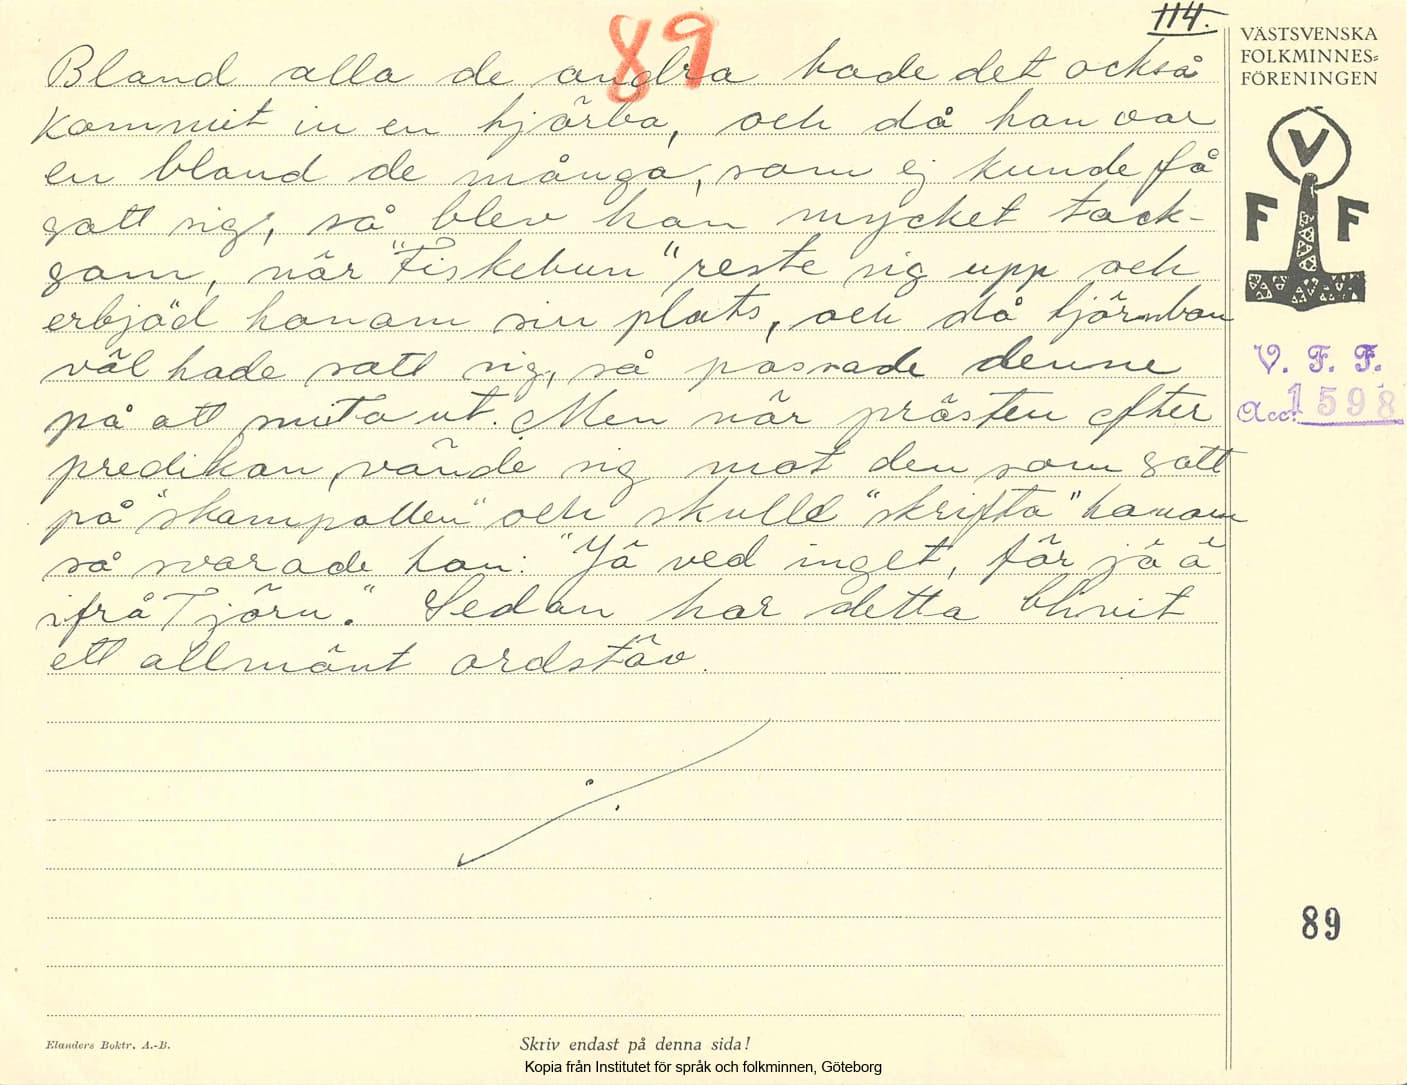 114.
89
VÄSTSVENSKA
FOLKMINNES-
FÖRENINGEN
V
F F
V. F. F.
Acc. 1598
Bland alla de andra hade det också
kommit in en hjärbo, och då han var
en bland de många, som ej kunde få
satt sig, så blev han mycket tack-
sam, när "Fiskebun" reste sig upp och
erbjöd honom sin plats, och då tjörnbon
väl hade satt sig, så passade denne
på att smita ut. Men när prästen efter
predikan, vände sig mot den som satt
på "skampallen" och skulle "skrifta" honom
så svarade han: "Jä ved inget, för jä ä
ifrå Tjörn." Sedan har detta blivit
ett allmänt ordstäv.
89
Elanders Boktr. A.-B.
Skriv endast på denna sida!
Kopia från Institutet för språk och folkminnen, Göteborg